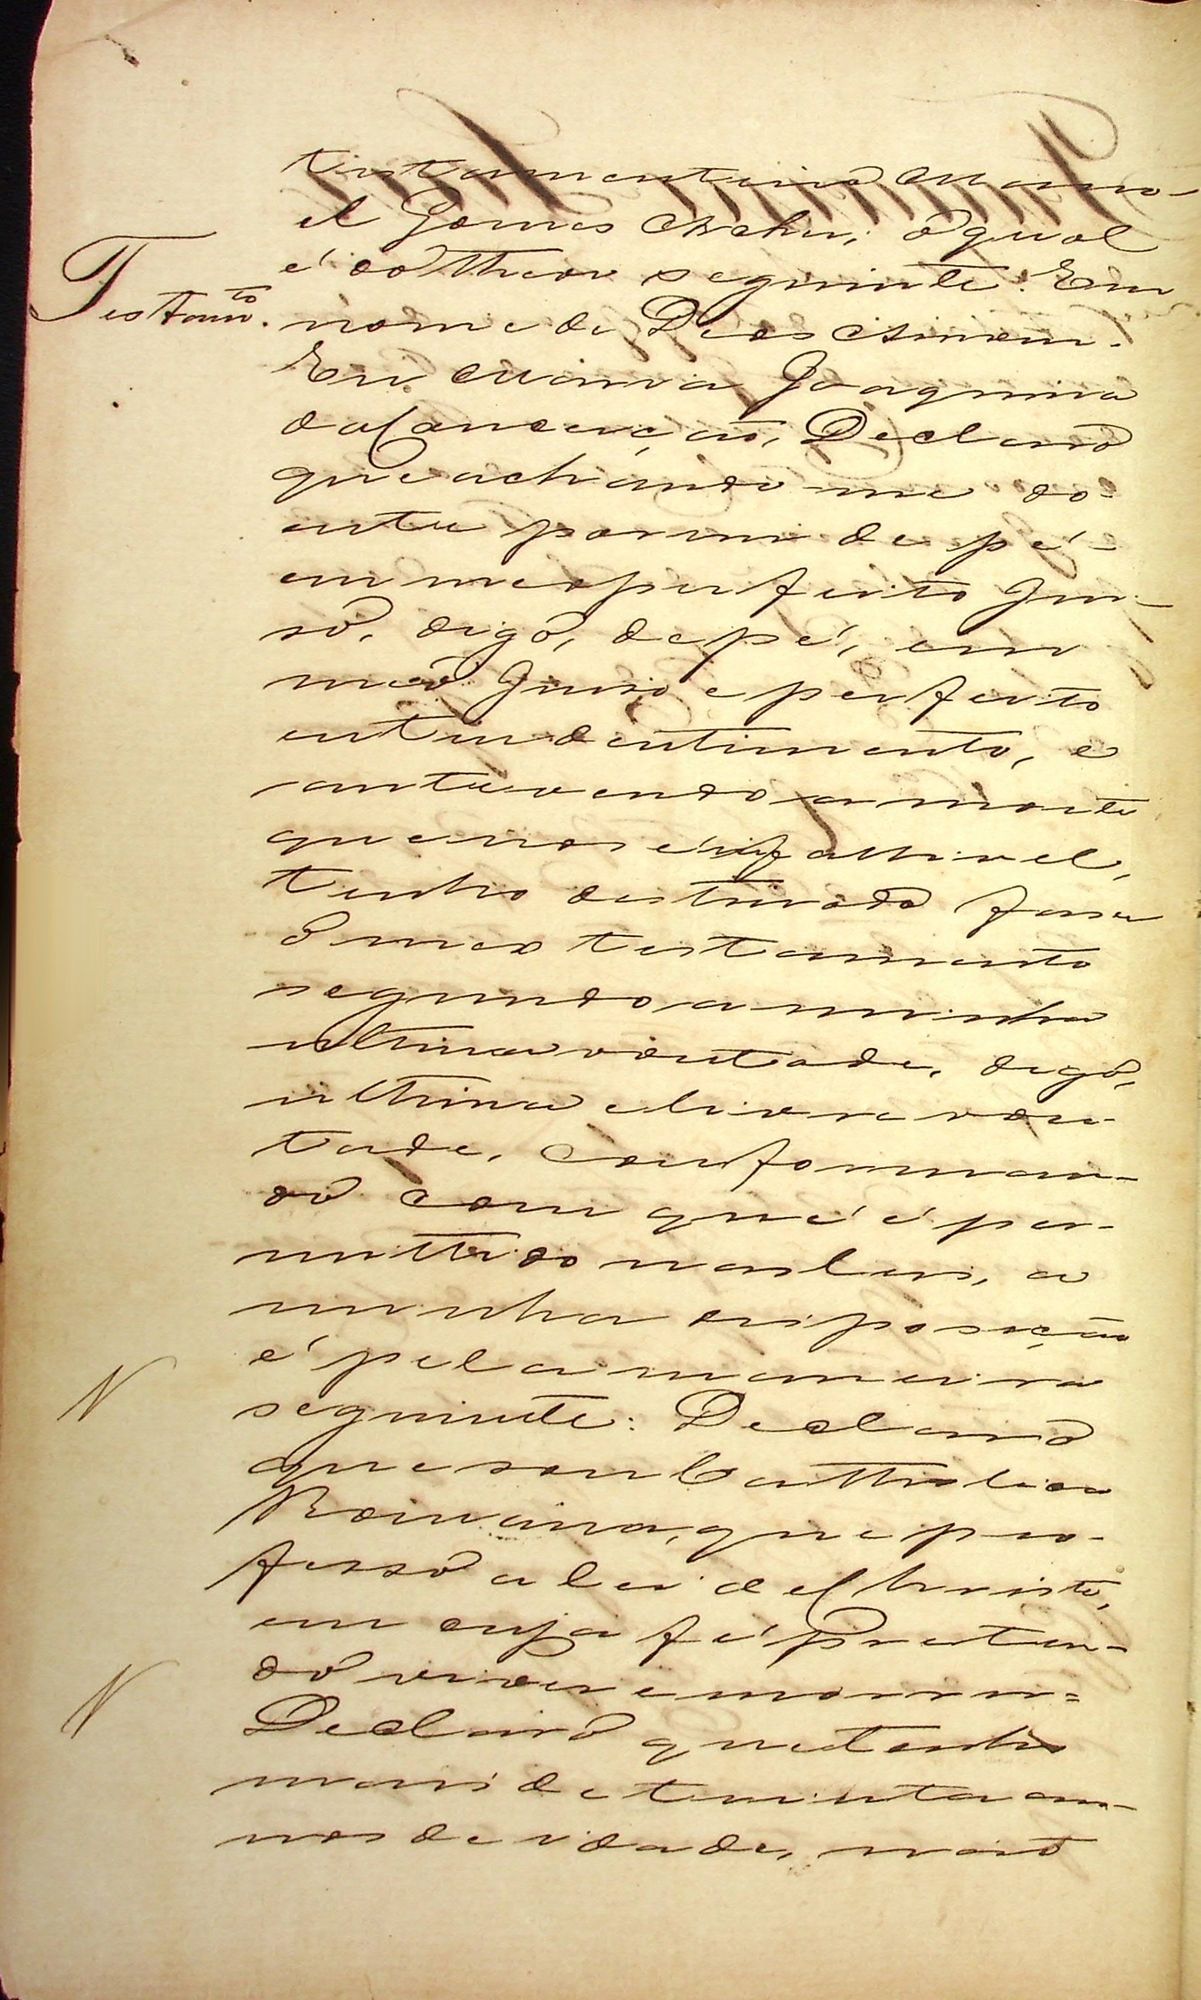 testamenteiro Mano-
el Gomes Archer, o qual
é do theor seguinte. Em
Testam.to
nome de Deos Amem.
Eu Maria Joaquina
da Conceição, Declaro
que achando-me do-
ente porem de pé-
em meo perfeito Jui-
so, digo, de pé, em
meo Juiso e perfeito
entendentimento, e
antevendo a morte
que nos é infallivel,
tenho destinado faser
o meo testamento
segundo a minha
ultima vontade, digo,
ultima e livre von-
tade, conforman-
do com que é é per-
mittido nas leis, a
minha disposição
é pela maneira
N
seguinte: Declaro
que sou Catholica
Romana, que pro-
fesso a lei de Christo,
em cuja fé preten-
do viver e morrer=
N
Declaro que tenho
mais de trinta an-
nos de idade, naõ